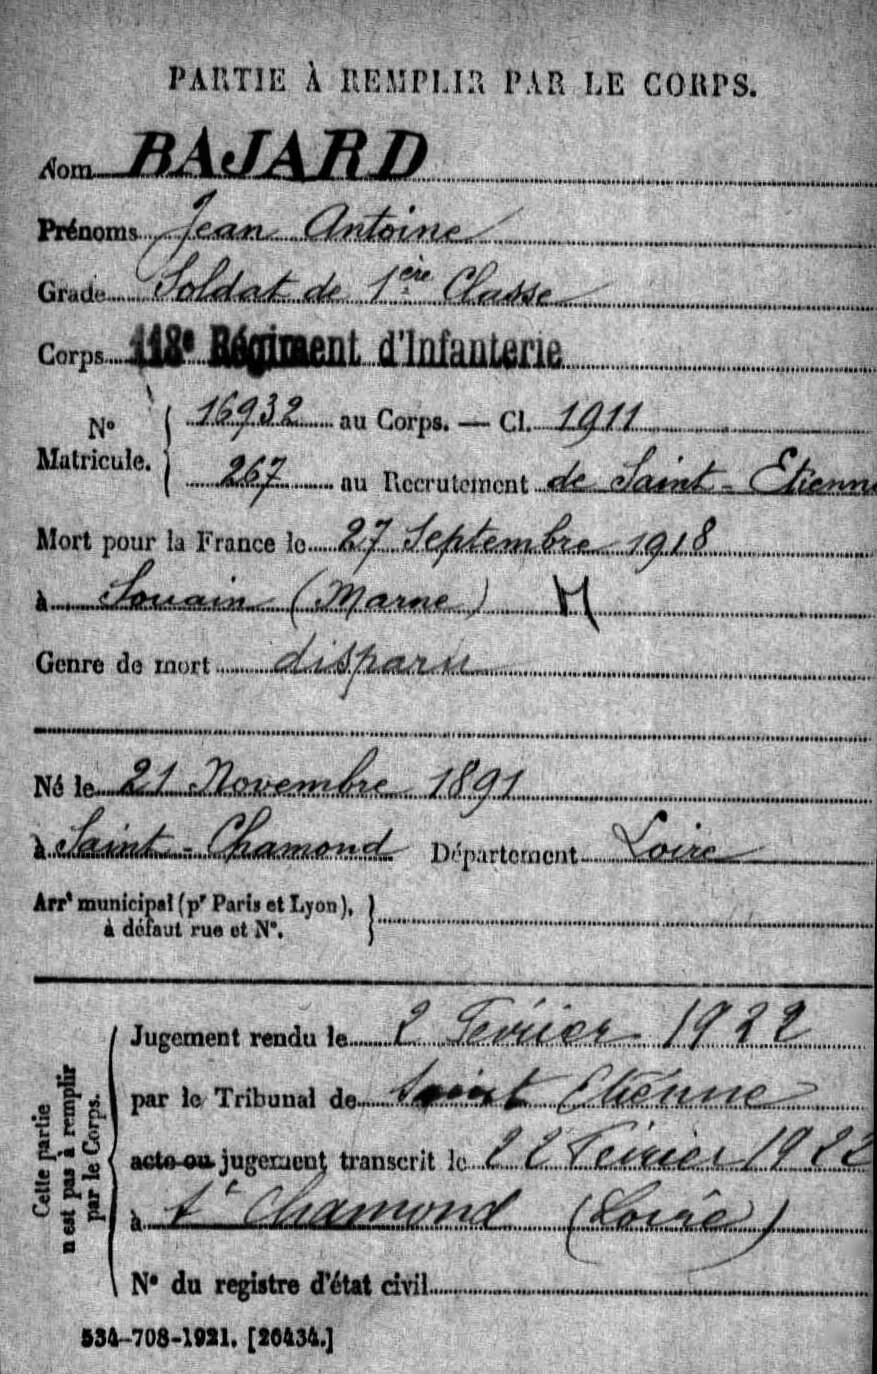 PARTIE À REMPLIR PAR LE CORPS.
Nom BAJARD
Prénoms Jean Antoine
Grade Soldat de 1ère Classe
Corps 118e Régiment d'Infanterie
No Matricule. 16932 au Corps. — Cl. 1911
267 au Recrutement de Saint-Etienne
Mort pour la France le 27 Septembre 1918
à Souain (Marne)
Genre de mort disparu
Né le 21 Novembre 1891
à Saint-Chamond Département Loire
Arrt municipal (pr Paris et Lyon),
à défaut rue et No.
Cette partie
n'est pas à remplir
par le Corps.
Jugement rendu le 2 Fevrier 1922
par le Tribunal de Saint Etienne
acte ou jugement transcrit le 22 Fevrier 1922
à St Chamond (Loire)
No du registre d'état civil
534-708-1921. [26434.]